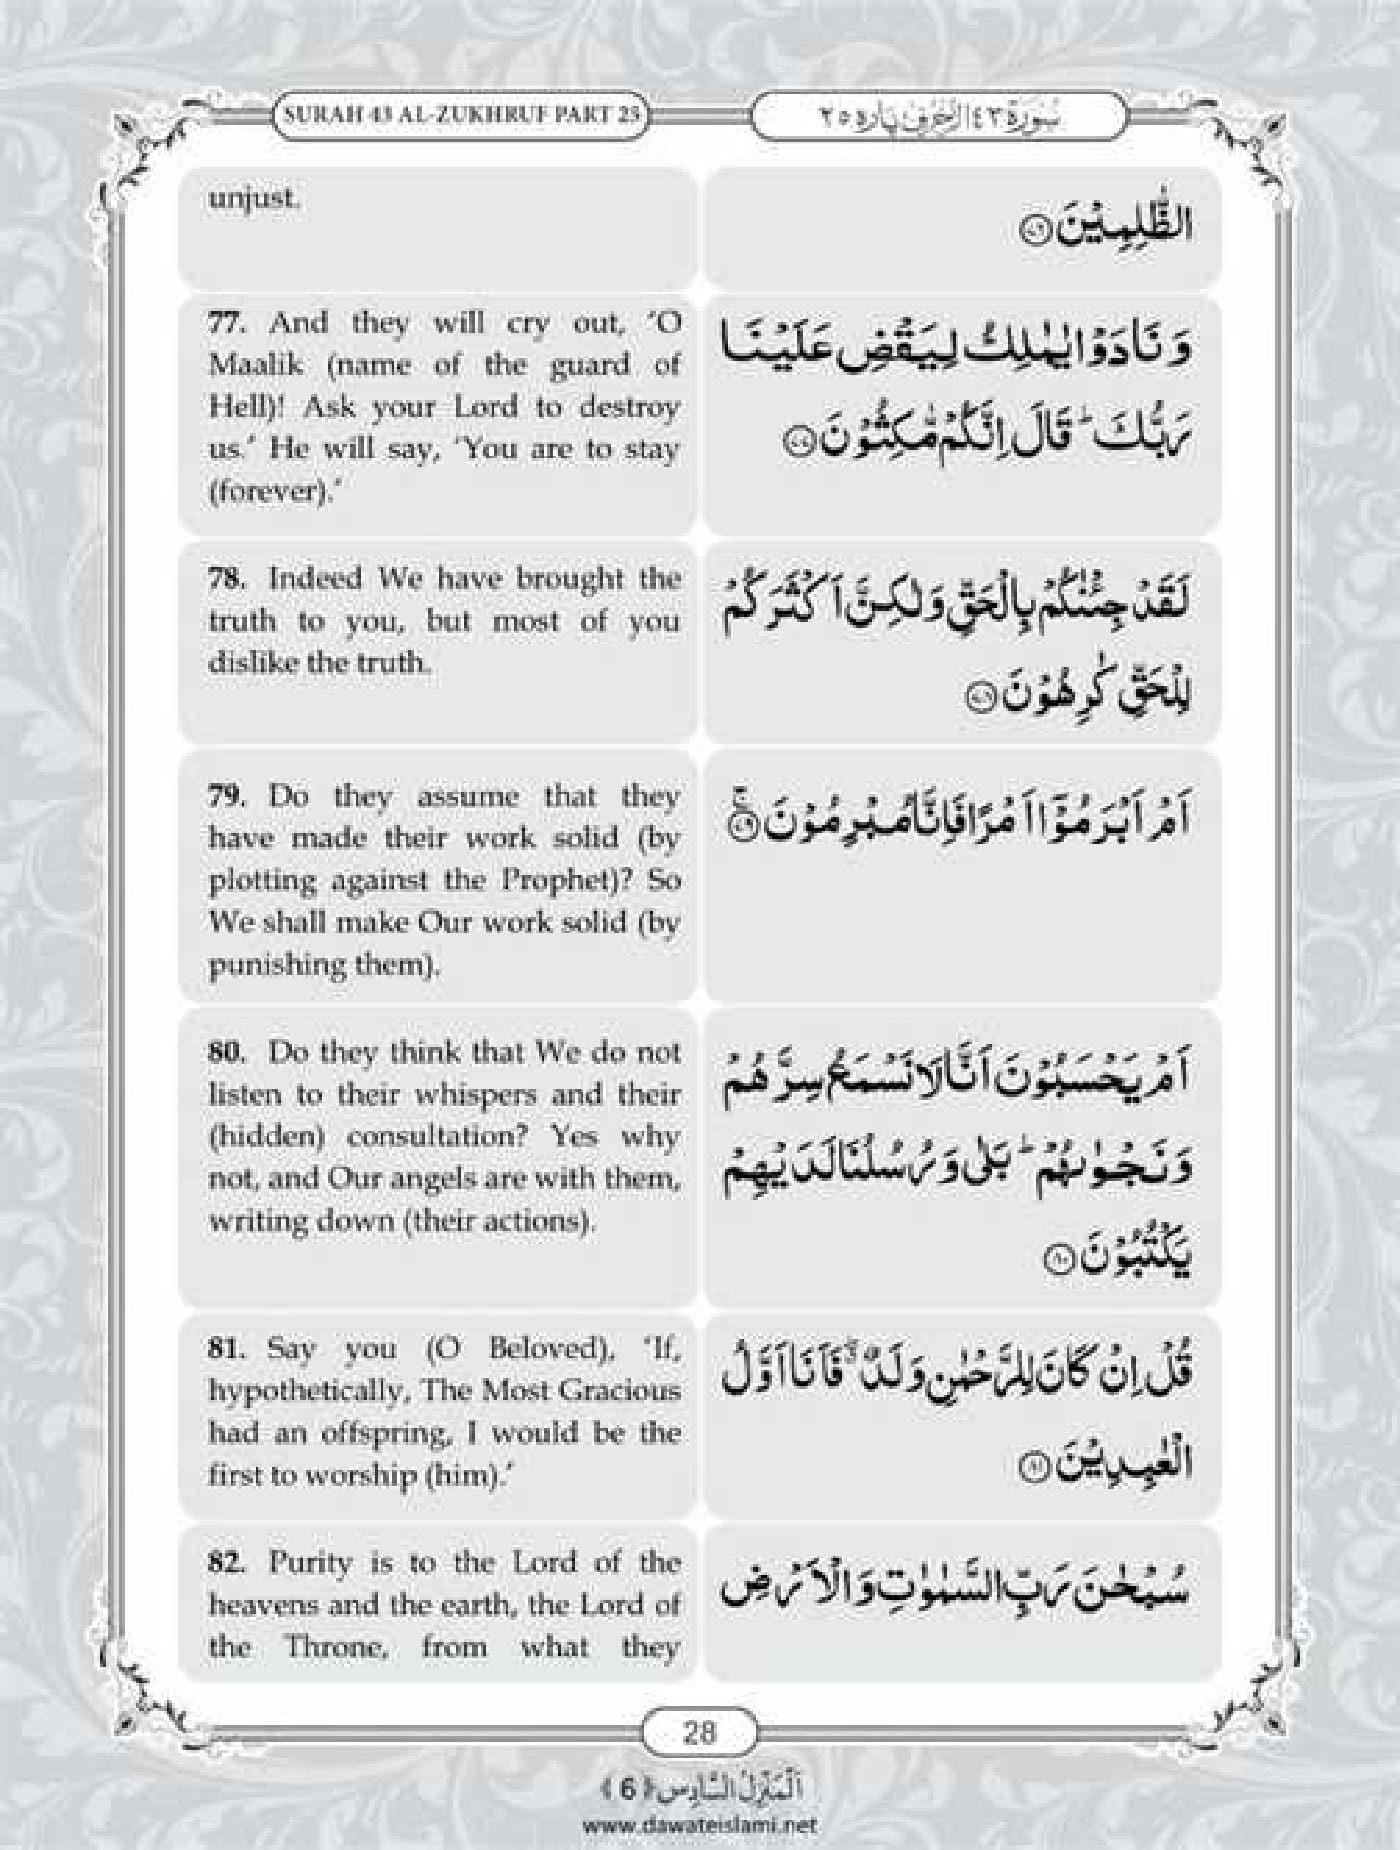 SURAH 43 AL-ZUKHRUF PART 25
سُوْرَۃ ٤٣ الزُّخْرُف پارہ ٢٥
unjust.
الظّٰلِمِیْنَ ﴿۷۶﴾
77. And they will cry out, ‘O
Maalik (name of the guard of
Hell)! Ask your Lord to destroy
us.’ He will say, ‘You are to stay
(forever).’
وَ نَادَوْا یٰمٰلِكُ لِیَقْضِ عَلَیْنَا
رَبُّكَ ؕ قَالَ اِنَّكُمْ مّٰكِثُوْنَ ﴿۷۷﴾
78. Indeed We have brought the
truth to you, but most of you
dislike the truth.
لَقَدْ جِئْنٰكُمْ بِالْحَقِّ وَ لٰكِنَّ اَكْثَرَكُمْ
لِلْحَقِّ كٰرِهُوْنَ ﴿۷۸﴾
79. Do they assume that they
have made their work solid (by
plotting against the Prophet)? So
We shall make Our work solid (by
punishing them).
اَمْ اَبْرَمُوْۤا اَمْرًا فَاِنَّا مُبْرِمُوْنَ ﴿ۚ۷۹﴾
80. Do they think that We do not
listen to their whispers and their
(hidden) consultation? Yes why
not, and Our angels are with them,
writing down (their actions).
اَمْ یَحْسَبُوْنَ اَنَّا لَا نَسْمَعُ سِرَّهُمْ
وَ نَجْوٰىهُمْ ؕ بَلٰی وَ رُسُلُنَا لَدَیْهِمْ
یَكْتُبُوْنَ ﴿۸۰﴾
81. Say you (O Beloved), ‘If,
hypothetically, The Most Gracious
had an offspring, I would be the
first to worship (him).’
قُلْ اِنْ كَانَ لِلرَّحْمٰنِ وَلَدٌ ۖۗ فَاَنَا اَوَّلُ
الْعٰبِدِیْنَ ﴿۸۱﴾
82. Purity is to the Lord of the
heavens and the earth, the Lord of
the Throne, from what they
سُبْحٰنَ رَبِّ السَّمٰوٰتِ وَ الْاَرْضِ
28
اَلْمَنْزِلُ السَّادِس ﴿6﴾
www.dawateislami.net